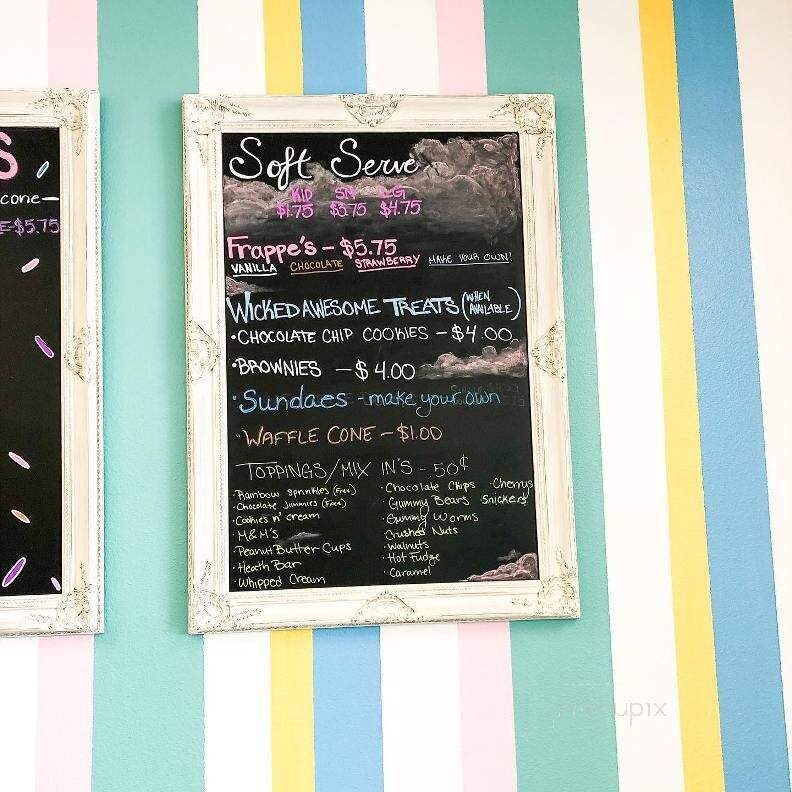 S
cone—
E-$5.75
Soft Serve
KID SM LG
$1.75 $3.75 $4.75
Frappe's - $5.75
VANILLA CHOCOLATE STRAWBERRY MAKE YOUR OWN!
WICKED AWESOME TREATS (WHEN AVAILABLE)
•CHOCOLATE CHIP COOKIES - $4.00
•BROWNIES - $4.00
•Sundaes - make your own
•WAFFLE CONE - $1.00
TOPPINGS/MIX IN'S - 50¢
•Rainbow Sprinkles (Free)
•Chocolate Jimmies (Free)
•Cookies n' cream
•M&M's
•Peanut Butter Cups
•Heath Bar
•Whipped Cream
•Chocolate Chips •Cherrys
•Gummy Bears Snickers
•Gummy Worms
•Crushed Nuts
•Walnuts
•Hot Fudge
•Caramel